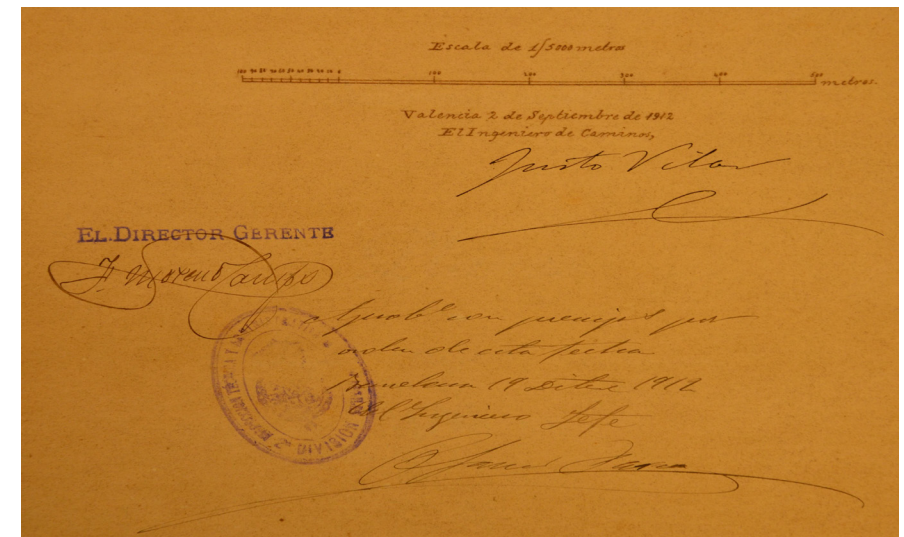 Escala de 1/5000 metros
100 90 80 70 60 50 40 30 20 10 0 100 200 300 400 500 metros.
Valencia 2 de Septiembre de 1912
El Ingeniero de Caminos,
Justo Vilar
EL DIRECTOR GERENTE
F. Moreno Campo
Aprobº con prescripˢ por
orden de esta fecha
Barcelona 19 Dibre 1912
El Ingeniero Jefe
DIVISION